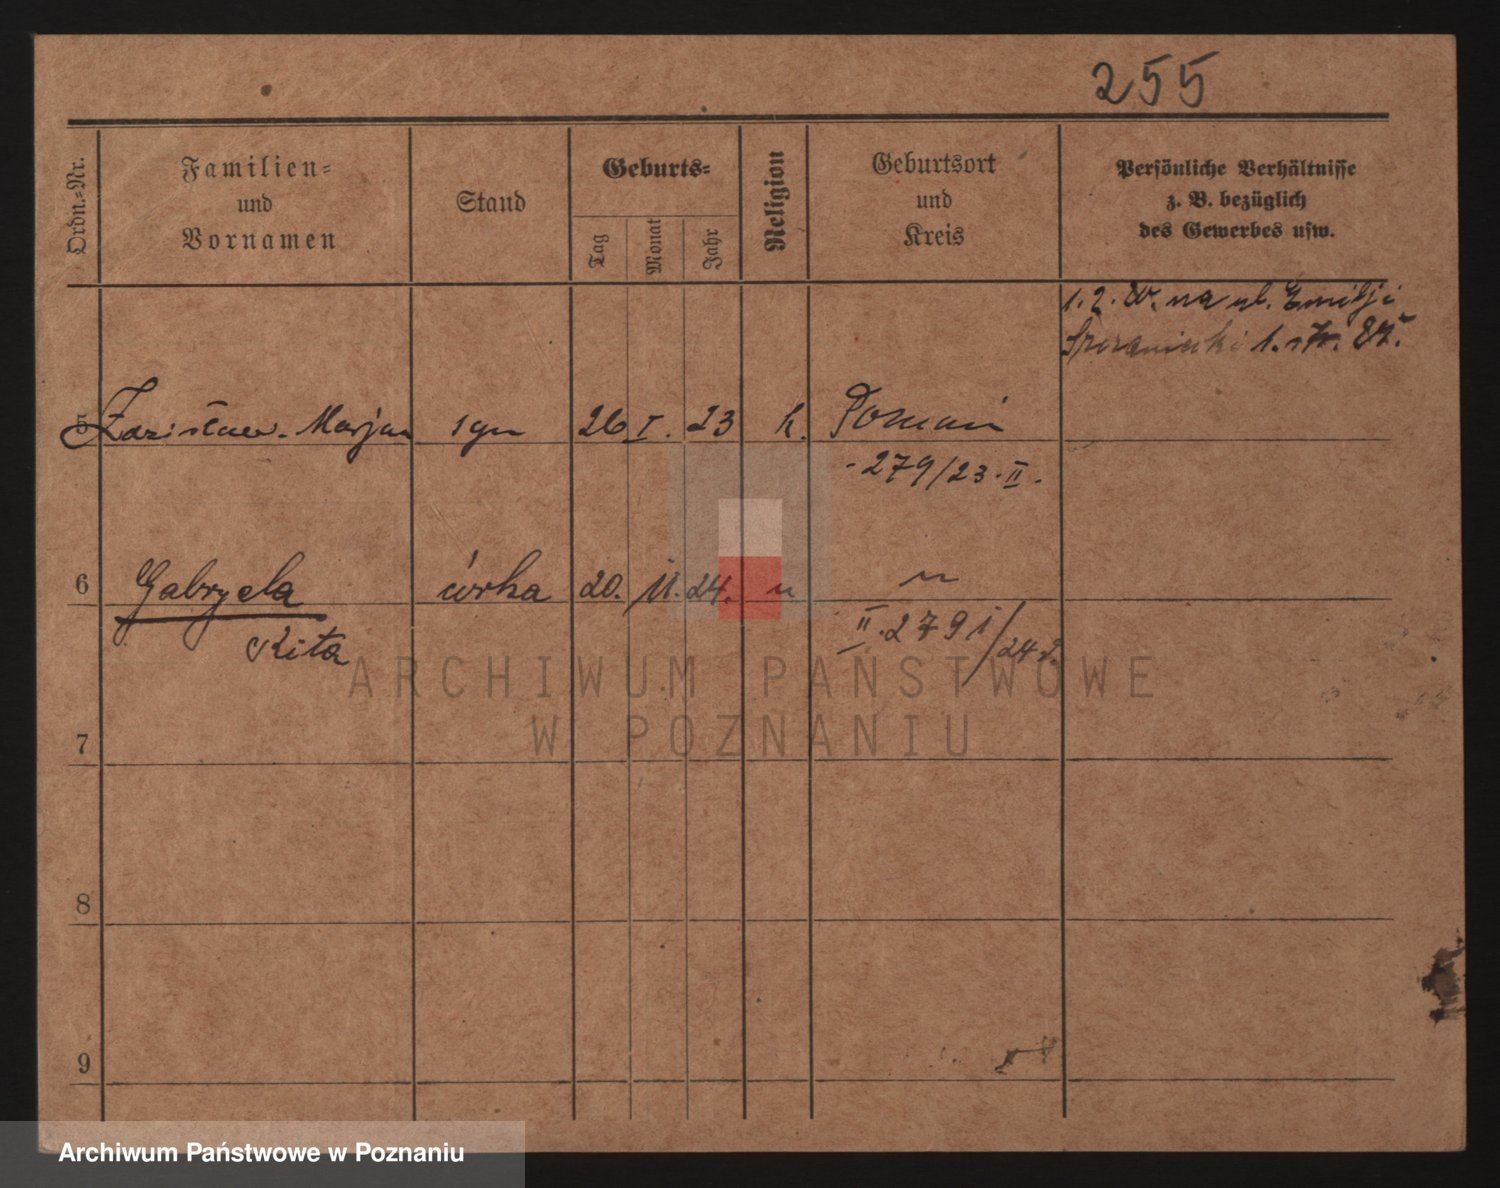 255
Ordn.=Nr.
Familien=
und
Vornamen
Stand
Geburts=
Tag
Monat
Jahr
Religion
Geburtsort
und
Kreis
Persönliche Verhältnisse
z. B. bezüglich
des Gewerbes usw.
na ul. Emilji
5 Marjan syn 26 I. 23 k. Poznań
279/23. II.
6 Gabryela córka 20. 24. "
Rita
II. 2791/24
7
8
9
ARCHIWUM PAŃSTWOWE
W POZNANIU
Archiwum Państwowe w Poznaniu